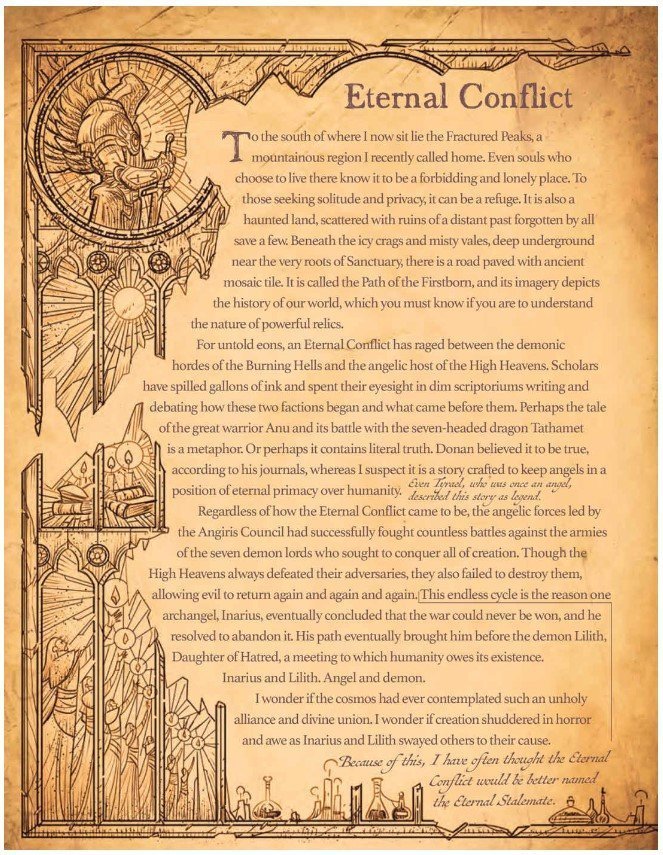 Eternal Conflict
To the south of where I now sit lie the Fractured Peaks, a
mountainous region I recently called home. Even souls who
choose to live there know it to be a forbidding and lonely place. To
those seeking solitude and privacy, it can be a refuge. It is also a
haunted land, scattered with ruins of a distant past forgotten by all
save a few. Beneath the icy crags and misty vales, deep underground
near the very roots of Sanctuary, there is a road paved with ancient
mosaic tile. It is called the Path of the Firstborn, and its imagery depicts
the history of our world, which you must know if you are to understand
the nature of powerful relics.
For untold eons, an Eternal Conflict has raged between the demonic
hordes of the Burning Hells and the angelic host of the High Heavens. Scholars
have spilled gallons of ink and spent their eyesight in dim scriptoriums writing and
debating how these two factions began and what came before them. Perhaps the tale
of the great warrior Anu and its battle with the seven-headed dragon Tathamet
is a metaphor. Or perhaps it contains literal truth. Donan believed it to be true,
according to his journals, whereas I suspect it is a story crafted to keep angels in a
position of eternal primacy over humanity.
Even Tyrael, who was once an angel,
described this story as legend.
Regardless of how the Eternal Conflict came to be, the angelic forces led by
the Angiris Council had successfully fought countless battles against the armies
of the seven demon lords who sought to conquer all of creation. Though the
High Heavens always defeated their adversaries, they also failed to destroy them,
allowing evil to return again and again and again. This endless cycle is the reason one
archangel, Inarius, eventually concluded that the war could never be won, and he
resolved to abandon it. His path eventually brought him before the demon Lilith,
Daughter of Hatred, a meeting to which humanity owes its existence.
Inarius and Lilith. Angel and demon.
I wonder if the cosmos had ever contemplated such an unholy
alliance and divine union. I wonder if creation shuddered in horror
and awe as Inarius and Lilith swayed others to their cause.
Because of this, I have often thought the Eternal
Conflict would be better named
the Eternal Stalemate.